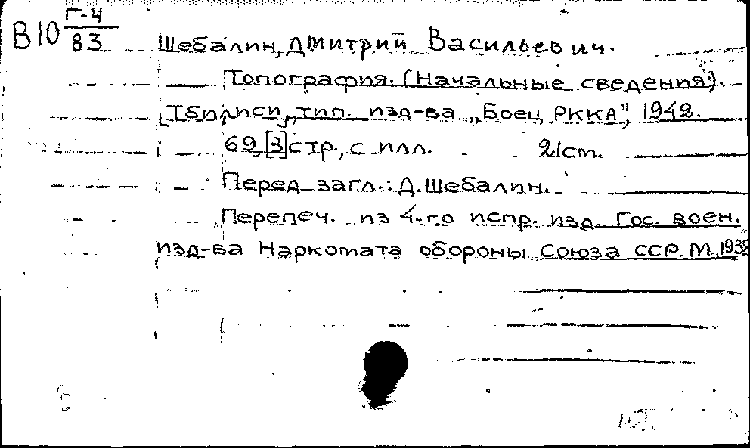 В10 Г-4/83
Шебалин, Дмитрий Васильевич.
Топография. (Начальные сведения).
Тбилиси, тип. изд-ва „Боец РККА", 1942.
69 [3] стр., с илл. 21 см.
Перед загл.: Д. Шебалин.
Перепеч. из 4-го испр. изд. Гос. воен.
изд-ва Наркомата обороны Союза ССР. М., 1938